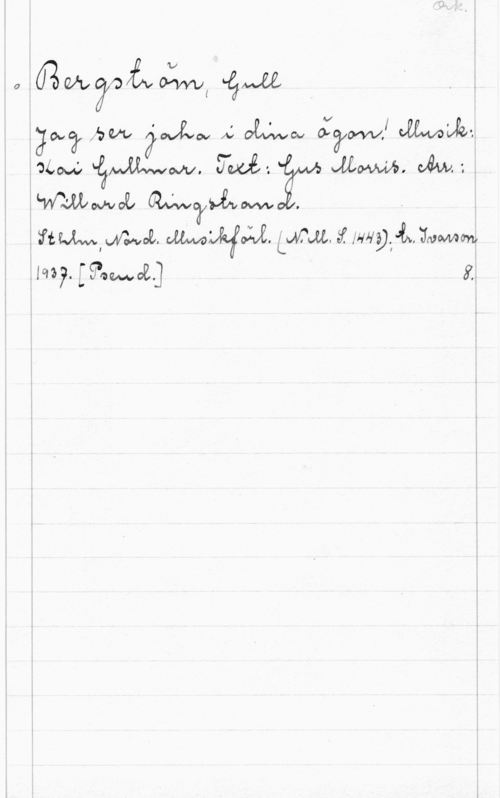 Ork.
Bergström, Gull
Jag ser jaha i dina ögon! Musik:
Kai Gullmar. Text: Gus Morris. Arr.:
Willard Ringstrand.
Sthlm, Nord. Musikförl. (N.M.S. 1443); tr. Ivarson
1937. [Pseud.] 8.